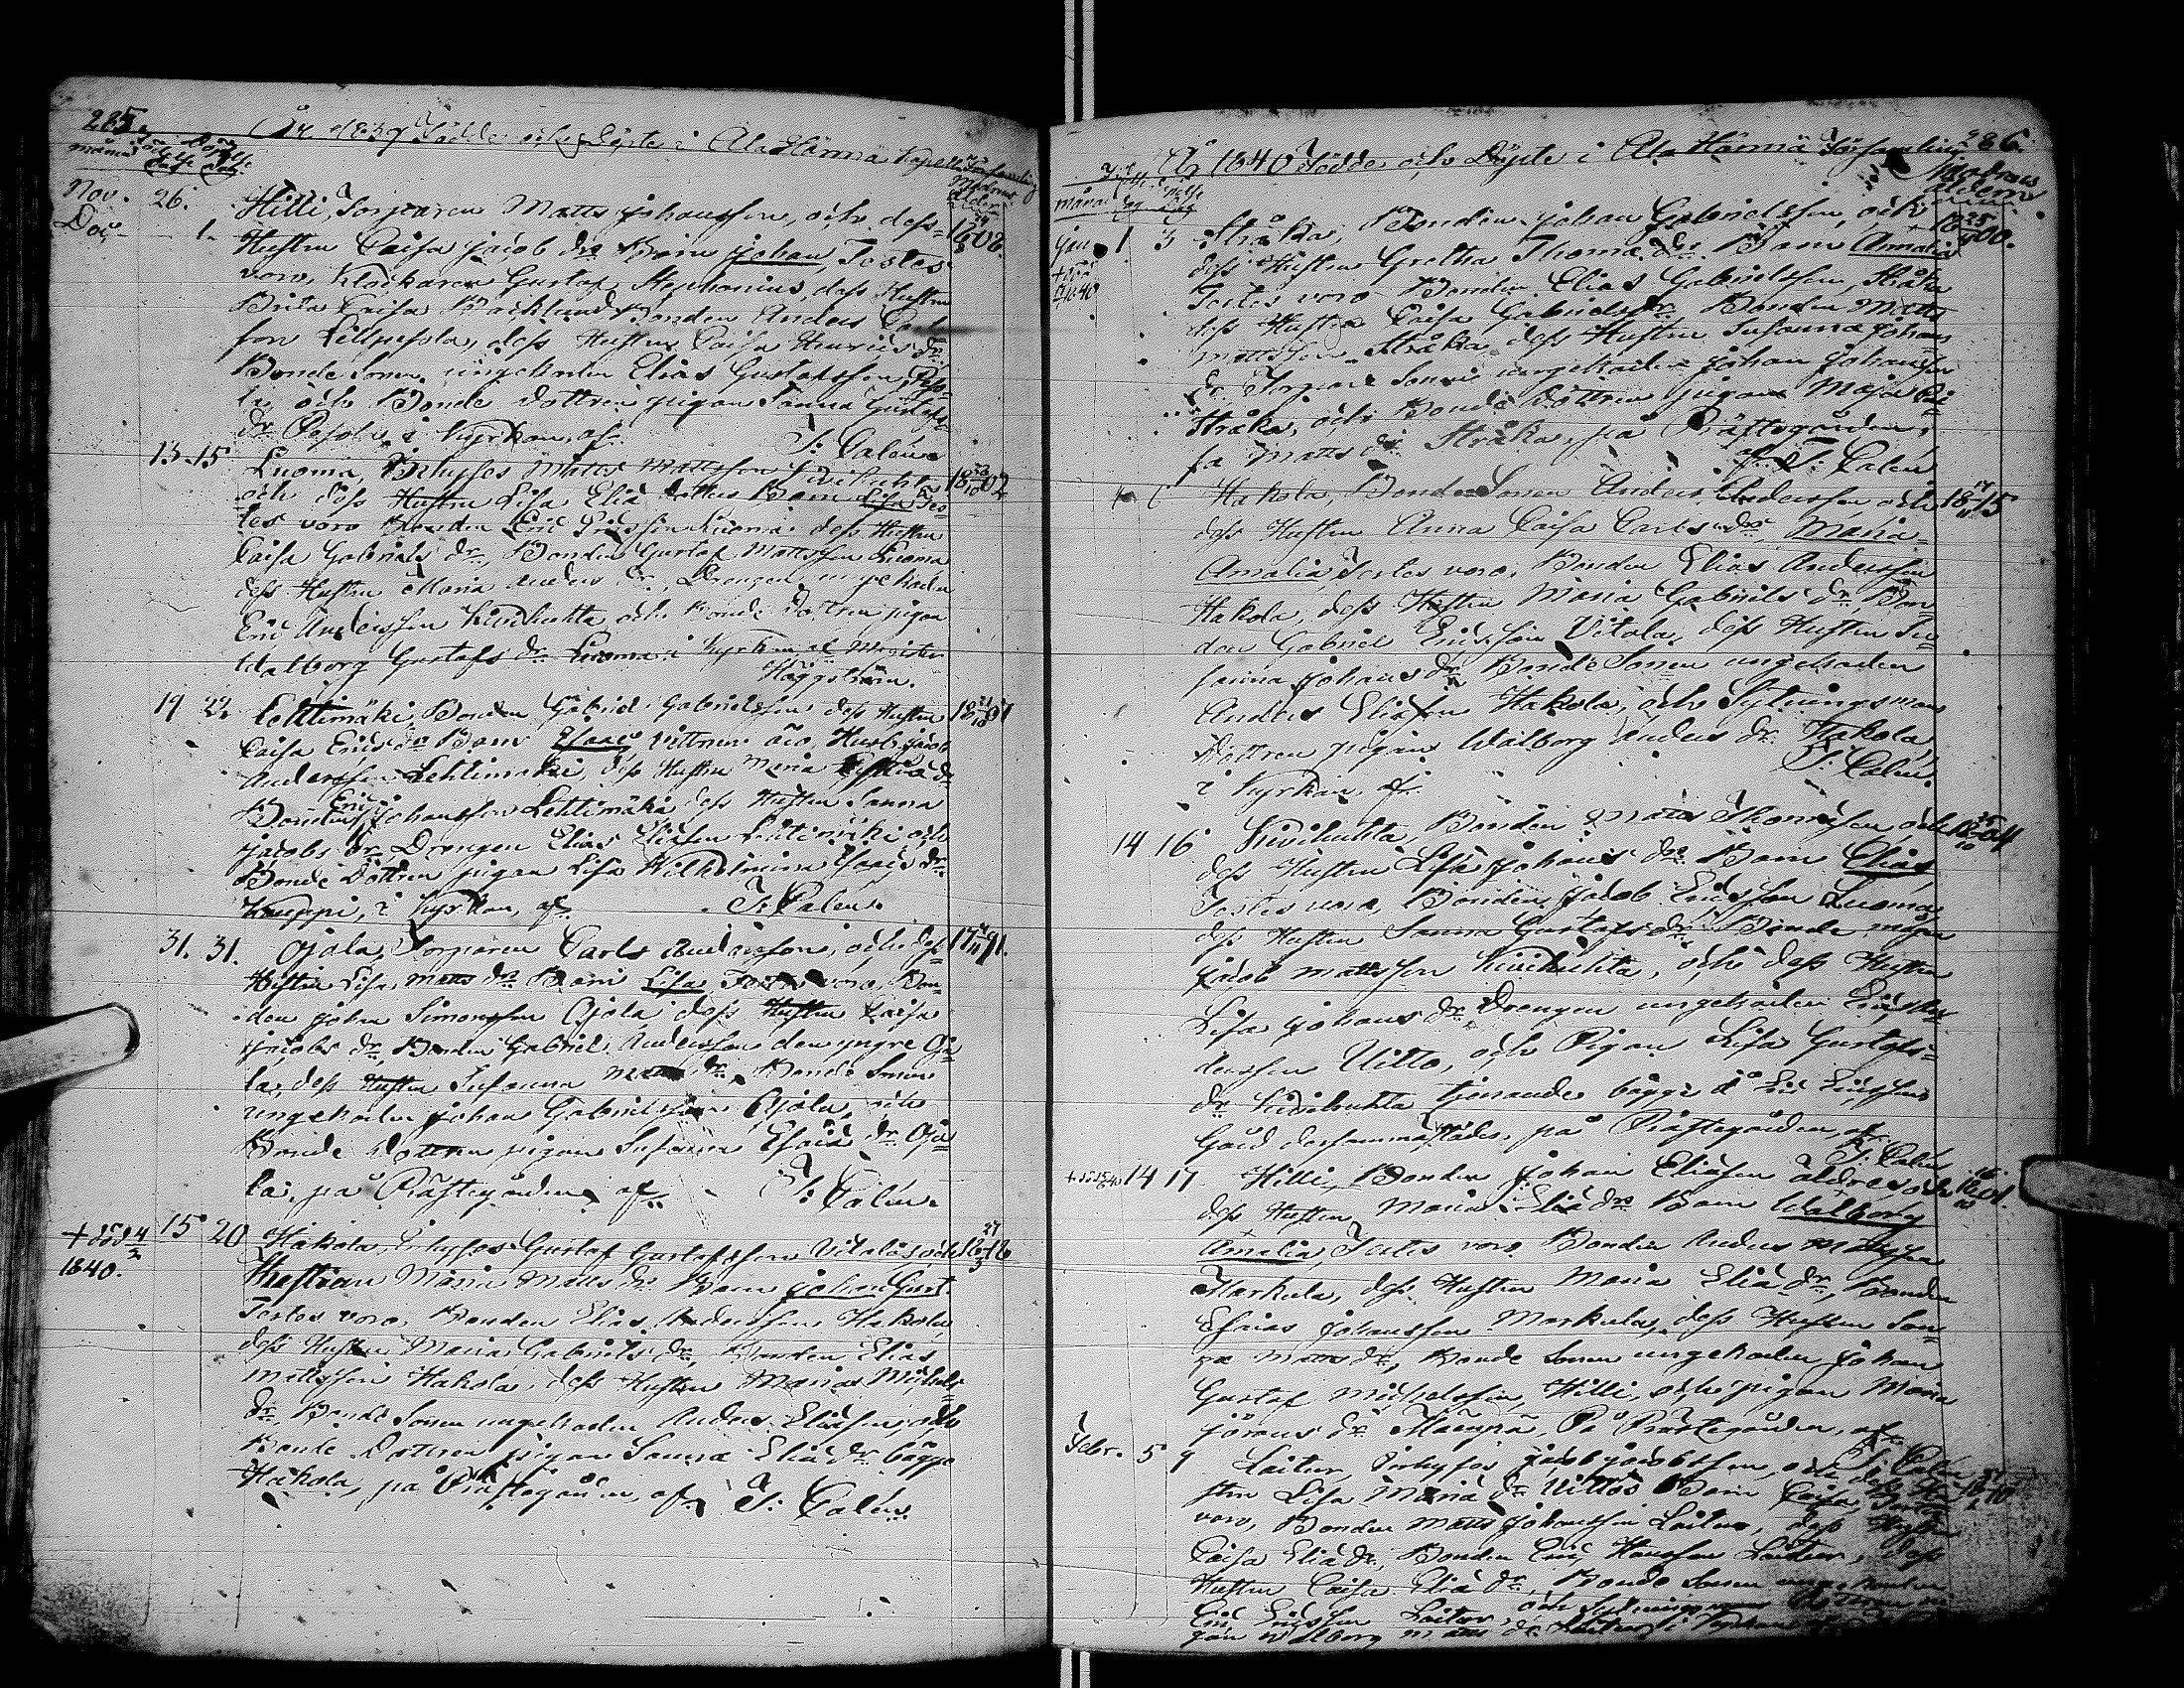 285.
År 1839 Födde och Döpte i Ala Härmä Kapell Församling
månad Födelse dag Döpelse dag. Modrens ålder
Nov. 26. Hilli, Torparen Matts Johansson, och dess
Dec. 1. Hustru Caisa Jacobs dr. Barn Johan, Testes 1802.
voro, Klockaren Gustaf Stephanius, dess Hustru
Brita Caisa Backlund, Bonden Anders Carls
son Lillpesola, dess Hustru Caisa Henrics dr.
Bonde Sonen ungekarlen Elias Gustafsson Peso
la och Bonde dottren pigan Sanna Gustafs
dr. Pesola, i Kyrkan, af J: Calén
13. 15. Luoma, Inhyses Matts Mattsson Kivihuhta 1802
och dess Hustru Lisa Eliæ dotters Barn Lisa Tes=
tes voro Bonden Eric Ericsson Luoma dess Hustru
Caisa Gabriels dr., Bonden Gustaf Mattsson Luoma
dess Hustru Maria Anders dr., Drengen ungekarlen
Eric Andersson Kivihuhta och Bonde Dottren pigan
Walborg Gustafs dr. Luoma i Kyrkan af
Häggström.
19 22 Lehtimäki, Bonden Gabriel Gabrielsson dess Hustru
Caisa Erics dr. Barn Esaias, Vittnen äro, Husb. Jacob
Andersson Lehtimäki, dess Hustru Maria
Bonden Eric Johansson Lehtimäki dess Hustru Sanna
Jacobs dr. Drengen Elias Eliasson Lehtimäki och
Bonde Dottren pigan Lisa Wilhelmina Esaiæ dr.
Kauppi, i Kyrkan, af J: Calén.
31. 31. Ojala, Torparen Carls Andersson, och dess 1791.
Hustru Lisa Matts dr. Barn Lisa, Testes voro, Bon=
den Johan Simonsson Ojala dess Hustru Caisa
Jacobs dr. Bonden Gabriel Andersson den yngre Oja
la, dess Hustru Susanna Matts dr. Bonde Sonen
ungekarlen Johan Gabrielsson Ojala, och
Bonde Dottren pigan Susanna Esaiæ dr. Oja
la, på Prästegården af J: Calén.
+ död 4/2 15 20 Hakola, Inhyses Gustaf Gustafsson Vitala, och
1840. Hustrun Maria Matts dr. Barn Johan Gust.
Testes voro, Bonden Elias Andersson Hakola,
dess Hustru Maria Gabriels dr., Bonden Elias
Mattsson Hakola, dess Hustru Maria Michels
dr. Bonde Sonen ungekarlen Anders Eliasson, och
Bonde Dottren pigan Sanna Eliæ dr. bägge
Hakola, på Prästegården, af J: Calén
286.
År 1840 Födde och Döpte i Ala Härmä Församling
Modrens ålder
Jan. 1. 3 Stråka, Bonden Johan Gabrielsson, och 1800.
dess Hustru Gretha Thomæ dr. Barn Amalia
Testes voro Bonden Elias Gabrielsson, Stråka
dess Hustru Caisa Gabriels dr. Bonden Matts
Mattsson Stråka dess Hustru Susanna Johans
dr. Torpare Sonen ungekarlen Johan Johansson
Stråka, och Bonde Dottren pigan Maja Cai=
sa Matts dr. Stråka, på Prästegården,
af J: Calén
6 Hakola, Bonde Sonen Anders Andersson och 1815
dess Hustru Anna Caisa Carls dr. Maria
Amalia, Testes voro, Bonden Elias Andersson
Hakola, dess Hustru Maria Gabriels dr. Bon=
den Gabriel Ericsson Vitala, dess Hustru Su=
sanna Johans dr. Bonde Sonen ungekarlen
Anders Eliasson Hakola, och Sytningsman
Dottren pigan Walborg Anders dr. Hakola,
i Kyrkan, af J: Calén
14 16 Kivihuhta, Bonden Matts Thomasson och 1804
dess Hustru Lisa Johans dr. Barn Elias,
Testes voro, Bonden Jacob Ericsson Luoma,
dess Hustru Sanna Gustafs dr. Bonde mågen
Jacob Mattsson Kivihuhta, och dess Hustru
Lisa Johans dr. Drengen ungekarlen Eric An=
dersson Uitto, och Pigan Lisa Gustafs=
dr. Kivihuhta tjenande bägge å Eric Ericssons
Gård dersammastädes, på Prästegården, af
J: Calén
14 17 Hilli, Bonden Johan Eliasson äldre, och 1801.
dess Hustru Maria Eliæ dr. Barn Walborg
Amalia, Testes voro Bonden Anders Mattsson
Markula, dess Hustru Maria Eliæ dr., Bonden
Esaias Johansson Markula, dess Hustru San=
na Matts dr., Bonde Sonen ungekarlen Johan
Gustaf Michelsson, Hilli, och pigan Maria
Jörans dr. Kamppa, På Prästegården, af
J: Calén
Febr. 5 9 Laitur, Inhyses Jacob Jacobsson, och dess Hu=
stru Lisa Maria dr. Uittos Barn Caisa, Testes
voro, Bonden Matts Johansson Laitur, dess Hustru
Caisa Eliæ dr., Bonden Eric Hansson Laitur, dess
Hustru Caisa Eliæ dr., Bonde Sonen ungekarlen
Eric Ericsson Laitur och Sytningsmans dottren pi
gan Walborg Matts dr. Laitur, i Kyrkan